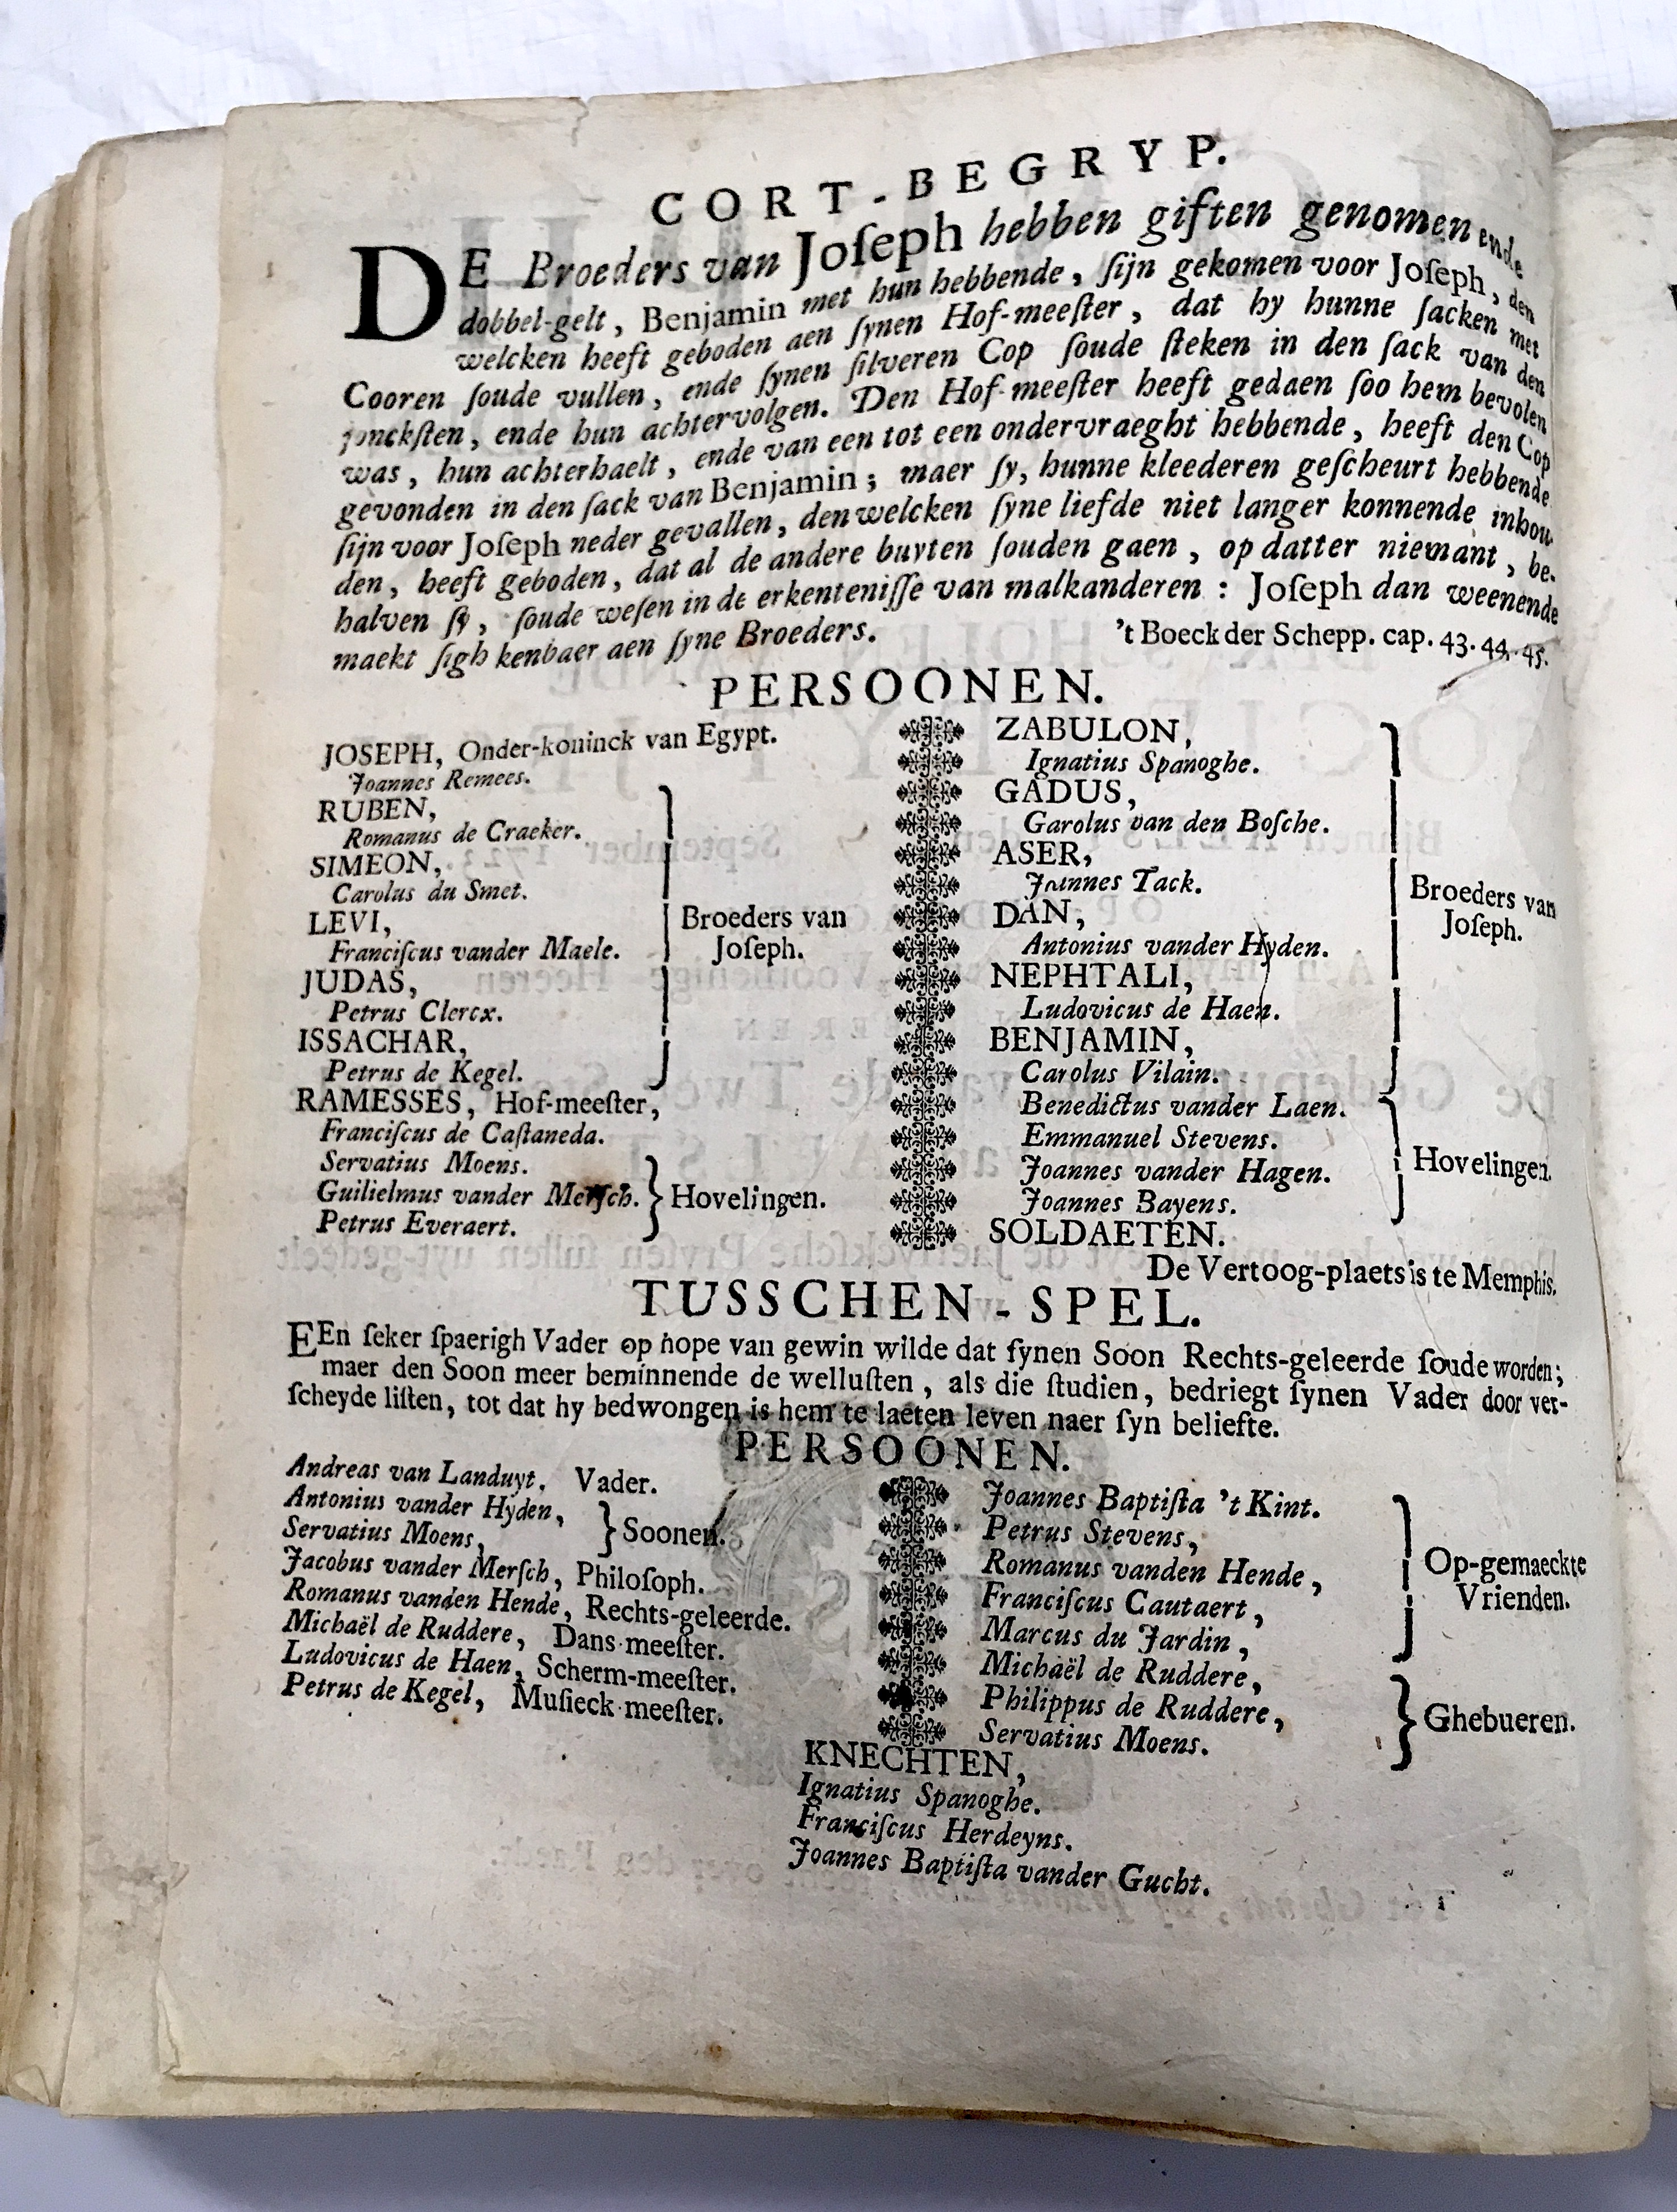 CORT-BEGRYP.
DE Broeders van Joſeph hebben giften genomen ende
dobbel-gelt, Benjamin met hun hebbende, ſijn gekomen voor Joſeph, den
welcken heeft geboden aen ſynen Hof-meeſter, dat hy hunne ſacken met
Cooren ſoude vullen, ende ſynen ſilveren Cop ſoude ſteken in den ſack van den
jonckſten, ende hun achtervolgen. Den Hof-meeſter heeft gedaen ſoo hem bevolen
was, hun achterhaelt, ende van een tot een ondervraeght hebbende, heeft den Cop
gevonden in den ſack van Benjamin; maer ſy, hunne kleederen geſcheurt hebbende
ſijn voor Joſeph neder gevallen, den welcken ſyne liefde niet langer konnende inhou-
den, heeft geboden, dat al de andere buyten ſouden gaen, op datter niemant, be-
halven ſy, ſoude weſen in de erkenteniſſe van malkanderen: Joſeph dan weenende
maekt ſigh kenbaer aen ſyne Broeders.
't Boeck der Schepp. cap. 43. 44. 45.
PERSOONEN.
JOSEPH, Onder-koninck van Egypt.
Joannes Remees.
RUBEN,
Romanus de Craeker.
SIMEON,
Carolus du Smet.
LEVI,
Franciſcus vander Maele.
JUDAS,
Petrus Clercx.
ISSACHAR,
Petrus de Kegel.
Broeders van
Joſeph.
RAMESSES, Hof-meeſter,
Franciſcus de Caſtaneda.
Servatius Moens.
Guilielmus vander Merſch.
Petrus Everaert.
Hovelingen.
ZABULON,
Ignatius Spanoghe.
GADUS,
Garolus van den Boſche.
ASER,
Joannes Tack.
DAN,
Antonius vander Hyden.
NEPHTALI,
Ludovicus de Haen.
BENJAMIN,
Carolus Vilain.
Broeders van
Joſeph.
Benedictus vander Laen.
Emmanuel Stevens.
Joannes vander Hagen.
Joannes Bayens.
Hovelingen.
SOLDAETEN.
De Vertoog-plaets is te Memphis.
TUSSCHEN-SPEL.
EEn ſeker ſpaerigh Vader op hope van gewin wilde dat ſynen Soon Rechts-geleerde ſoude worden;
maer den Soon meer beminnende de welluſten, als die ſtudien, bedriegt ſynen Vader door ver-
ſcheyde liſten, tot dat hy bedwongen is hem te laeten leven naer ſyn beliefte.
PERSOONEN.
Andreas van Landuyt, Vader.
Antonius vander Hyden,
Servatius Moens,
Soonen.
Jacobus vander Merſch, Philoſoph.
Romanus vanden Hende, Rechts-geleerde.
Michaël de Ruddere, Dans-meeſter.
Ludovicus de Haen, Scherm-meeſter.
Petrus de Kegel, Muſieck-meeſter.
Joannes Baptiſta 't Kint.
Petrus Stevens,
Romanus vanden Hende,
Franciſcus Cautaert,
Marcus du Jardin,
Op-gemaeckte
Vrienden.
Michaël de Ruddere,
Philippus de Ruddere,
Servatius Moens.
Ghebueren.
KNECHTEN,
Ignatius Spanoghe.
Franciſcus Herdeyns.
Joannes Baptiſta vander Gucht.